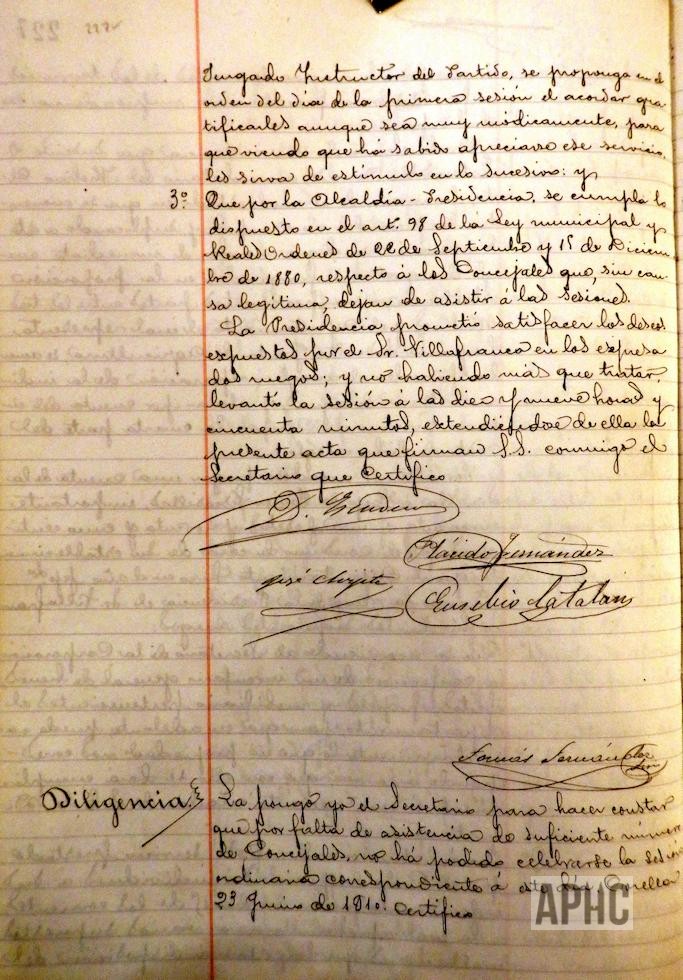 Juzgado Instructor del Partido, se proponga en el
orden del día de la primera sesión el acordar gra-
tificarles aunque sea muy módicamente, para
que viendo que há sabido apreciarse ese servicio,
les sirva de estímulo en lo sucesivo: y
3º Que por la Alcaldía-Presidencia, se cumpla lo
dispuesto en el art. 98 de la Ley municipal y
Reales Ordenes de 22 de Septiembre y 15 de Diciem-
bre de 1880, respecto á los Concejales que, sin cau-
sa legítima, dejan de asistir á las sesiones.
La Presidencia prometió satisfacer los deseos
expuestos por el Sr. Villafranca en los expresa
dos ruegos; y nó habiendo más que tratar,
levantó la sesión á las diez y nueve horas y
cincuenta minutos, extendiéndose de ella la
presente acta que firman S.S. conmigo el
Secretario que Certifico
Plácido Fernández
José
Eusebio Catalán
Tomás Fernán
Diligencia. La pongo yo el Secretario para hacer constar
que por falta de asistencia de suficiente número
de Concejales, no há podido celebrarse la sesión
ordinaria correspondiente á este día, Corella
23 Junio de 1910. Certifico
APHC